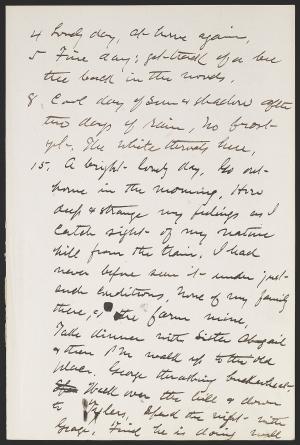 4 Lovely day, at home again,
5 Fine day; got track of a bee
tree back in the woods,
8. Cool day of sun & shadow after
two days of rain, No frost
yet. The white throats here,
15, A bright lovely day, Go out
home in the morning, How
deep & strange my feelings as I
catch sight of my native
hill from the train. I had
never before seen it under just
such conditions, None of my family
there, & the farm mine,
Take dinner with Sister Abigail
& then P.M. walk up to the old
place. George thrashing buckwheat.
Walk over the hill & down
to spend the night with
George, Find he is doing well